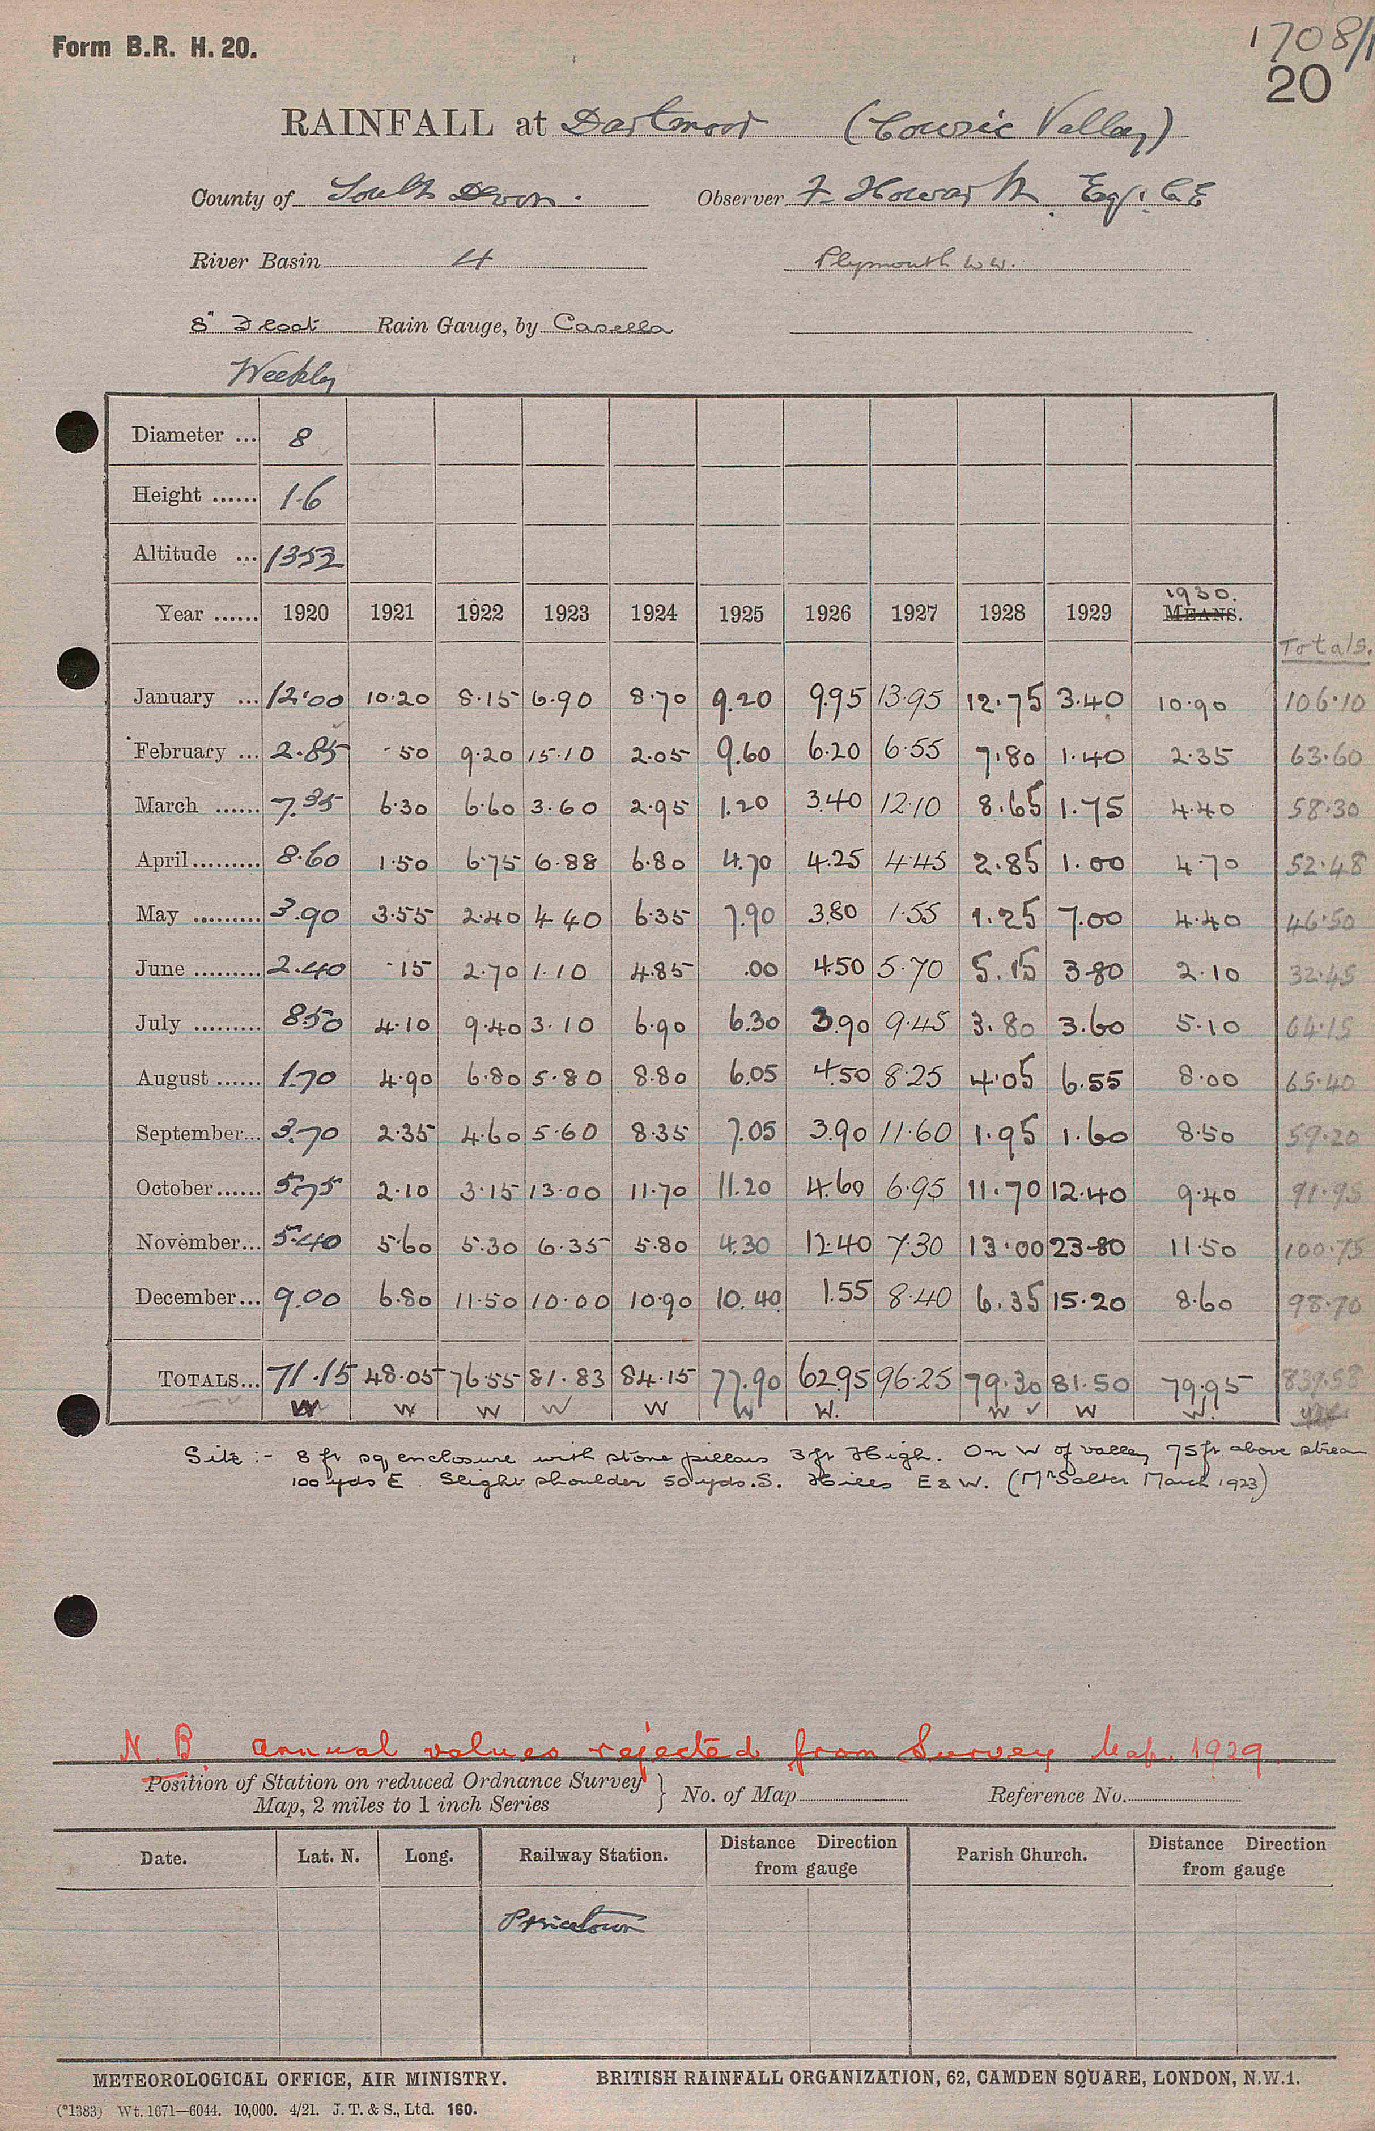 Form B.R. H. 20.
1708/1
20
RAINFALL at Dartmoor (Cowsic Valley)
County of South Devon. Observer F. Howarth Esq. C.E
River Basin 4 Plymouth W.W.
8" Float Rain Gauge, by Casella
Weekly
Diameter ... 8
Height ...... 1.6
Altitude ... 1352
Year ...... 1920 1921 1922 1923 1924 1925 1926 1927 1928 1929 1930. MEANS.
Totals.
January ... 12.00 10.20 8.15 6.90 8.70 9.20 9.95 13.95 12.75 3.40 10.90 106.10
February ... 2.85 .50 9.20 15.10 2.05 9.60 6.20 6.55 7.80 1.40 2.35 63.60
March ...... 7.35 6.30 6.60 3.60 2.95 1.20 3.40 12.10 8.65 1.75 4.40 58.30
April......... 8.60 1.50 6.75 6.88 6.80 4.70 4.25 4.45 2.85 1.00 4.70 52.48
May ......... 3.90 3.55 2.40 4 40 6.35 7.90 3.80 1.55 1.25 7.00 4.40 46.50
June ......... 2.40 .15 2.70 1.10 4.85 .00 4.50 5.70 5.15 3.80 2.10 32.45
July ......... 8.50 4.10 9.40 3.10 6.90 6.30 3.90 9.45 3.80 3.60 5.10 64.15
August ...... 1.70 4.90 6.80 5.80 8.80 6.05 4.50 8.25 4.05 6.55 8.00 65.40
September... 3.70 2.35 4.60 5.60 8.35 7.05 3.90 11.60 1.95 1.60 8.50 59.20
October...... 5.75 2.10 3.15 13.00 11.70 11.20 4.60 6.95 11.70 12.40 9.40 91.95
November... 5.40 5.60 5.30 6.35 5.80 4.30 12.40 7.30 13.00 23.80 11.50 100.75
December... 9.00 6.80 11.50 10.00 10.90 10.40 1.55 8.40 6.35 15.20 8.60 98.70
TOTALS... 71.15 48.05 76.55 81.83 84.15 77.90 62.95 96.25 79.30 81.50 79.95 839.58
W W W W W W W. W W W.
Site :- 8 ft sq enclosure with stone pillars 3 ft High. On W of valley 75 ft above stream
100 yds E Slight shoulder 50 yds. S. Hills E & W. (Mr Salter March 1923)
N.B annual values rejected from Survey Map. 1929
Position of Station on reduced Ordnance Survey
Map, 2 miles to 1 inch Series } No. of Map Reference No.
Date. Lat. N. Long. Railway Station. Distance Direction from gauge Parish Church. Distance Direction from gauge
Princetown
METEOROLOGICAL OFFICE, AIR MINISTRY. BRITISH RAINFALL ORGANIZATION, 62, CAMDEN SQUARE, LONDON, N.W.1.
(*1383) Wt. 1671—6044. 10,000. 4/21. J. T. & S., Ltd. 160.